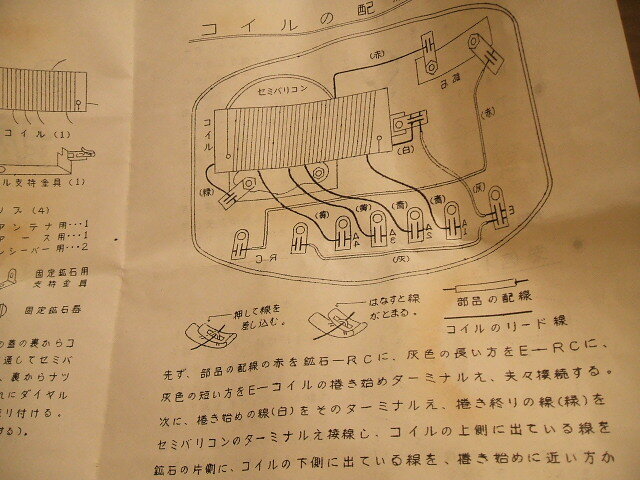 コイルの配
コイル(1)
ル支持金具(1)
ップ(4)
アンテナ用…1
アース用…1
レシーバー用…2
固定鉱石用
支持金具
固定鉱石器
の蓋の裏からコ
通してセミバ
、裏からナツ
れにダイヤル
り付ける。
する)。
(赤)
鉱石
セミバリコン
コイル
(赤)
(白)
(緑)
(黄)
(黄)
(青)
(青)
(灰)
R C
A4
A3
A2
A1
E
(灰)
押して線を
差し込む。
はなすと線
がとまる。
部品の配線
コイルのリード線
先ず、部品の配線の赤を鉱石—RCに、灰色の長い方をE—RCに、
灰色の短い方をE—コイルの捲き始めターミナルえ、夫々接続する。
次に、捲き始めの線(白)をそのターミナルえ、捲き終りの線(緑)を
セミバリコンのターミナルえ接続し、コイルの上側に出ている線を
鉱石の片側に、コイルの下側に出ている線を、捲き始めに近い方か